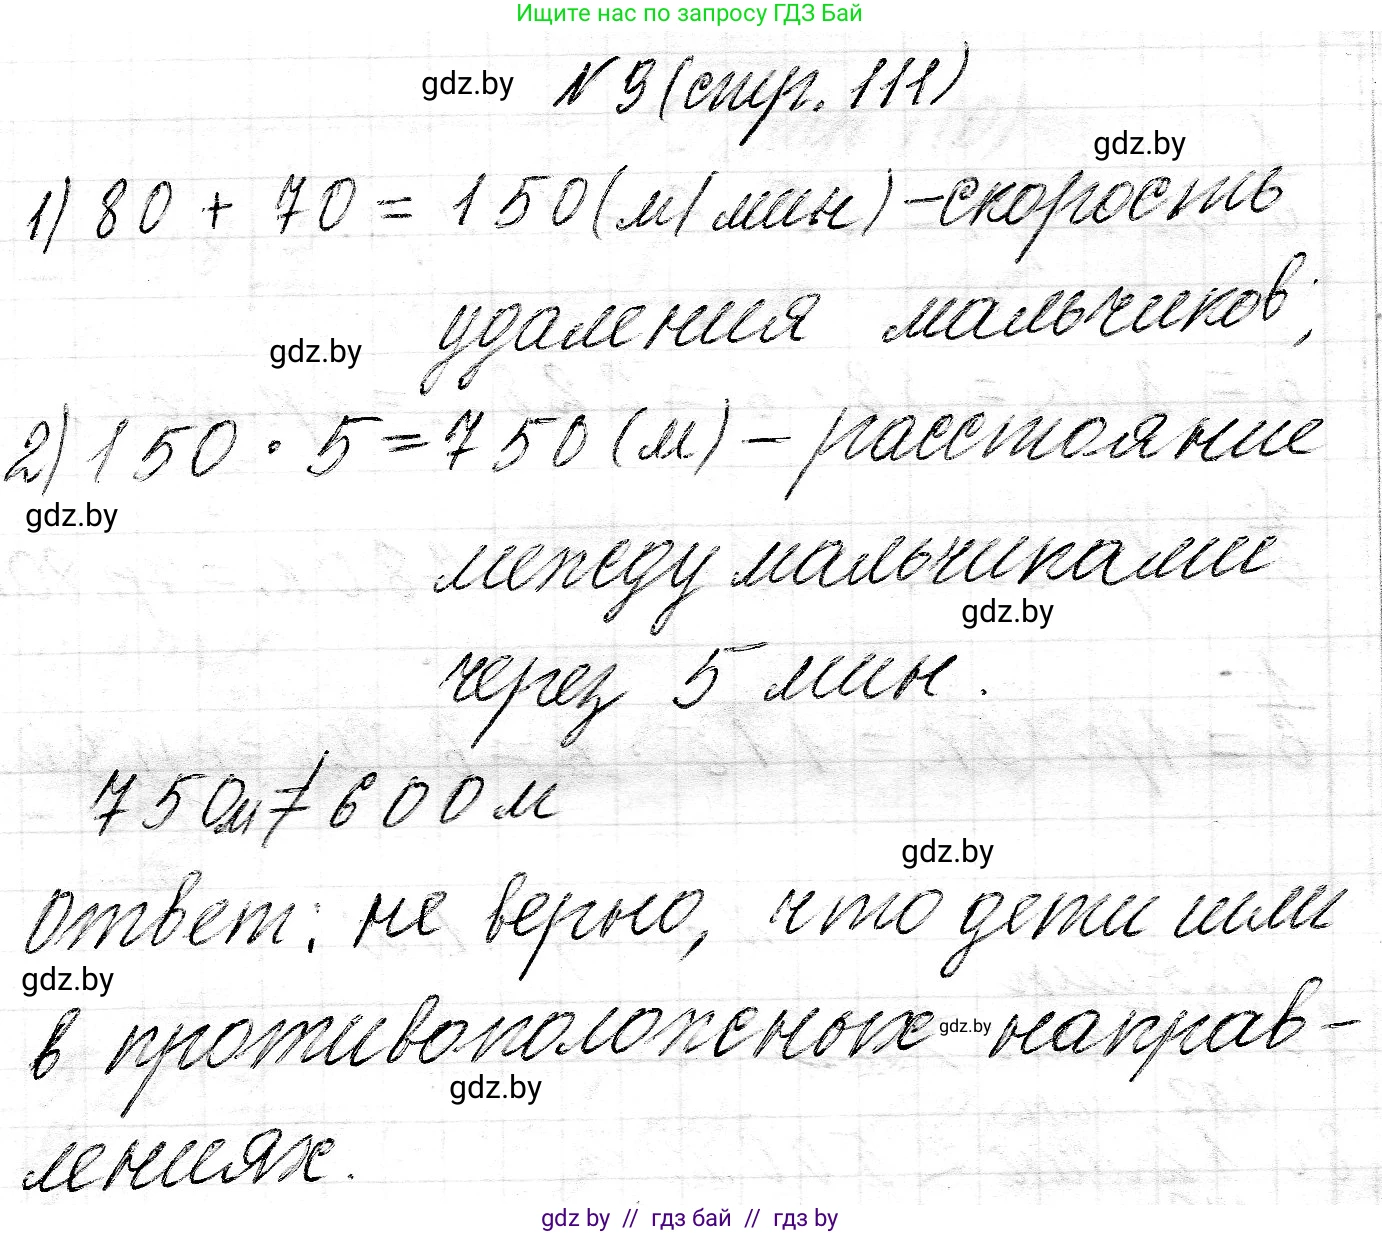 Ищите нас по запросу ГДЗ Бай
gdz.by N 9 (стр. 111)
gdz.by
1) 80 + 70 = 150 (м/мин) - скорость
удаления мальчиков;
gdz.by
2) 150 · 5 = 750 (м) - расстояние
gdz.by
между мальчиками
gdz.by
через 5 мин.
750м ≠ 600м
gdz.by
Ответ: не верно, что дети шли
gdz.by
в противоположных gdz.by направ-
gdz.by
лениях.
gdz by // гдз бай // гдз by